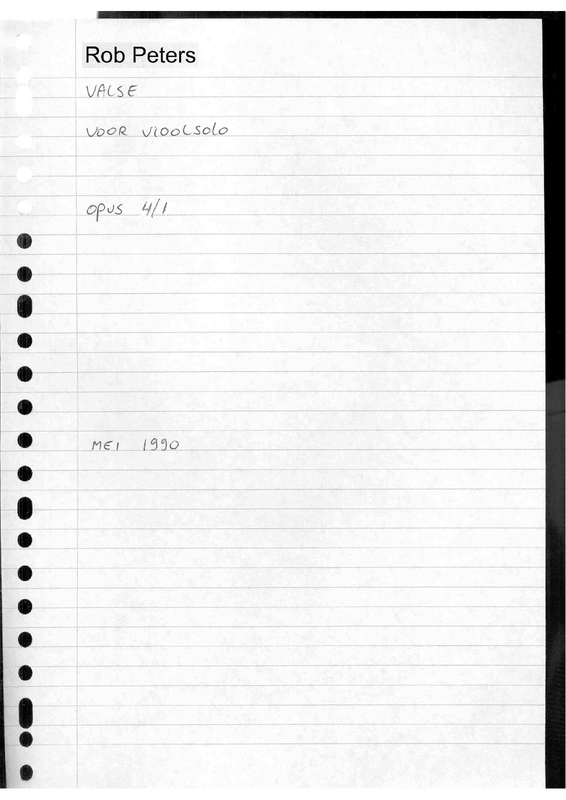 Rob Peters
VALSE
VOOR VIOOLSOLO
OPUS 4/1
MEI 1990